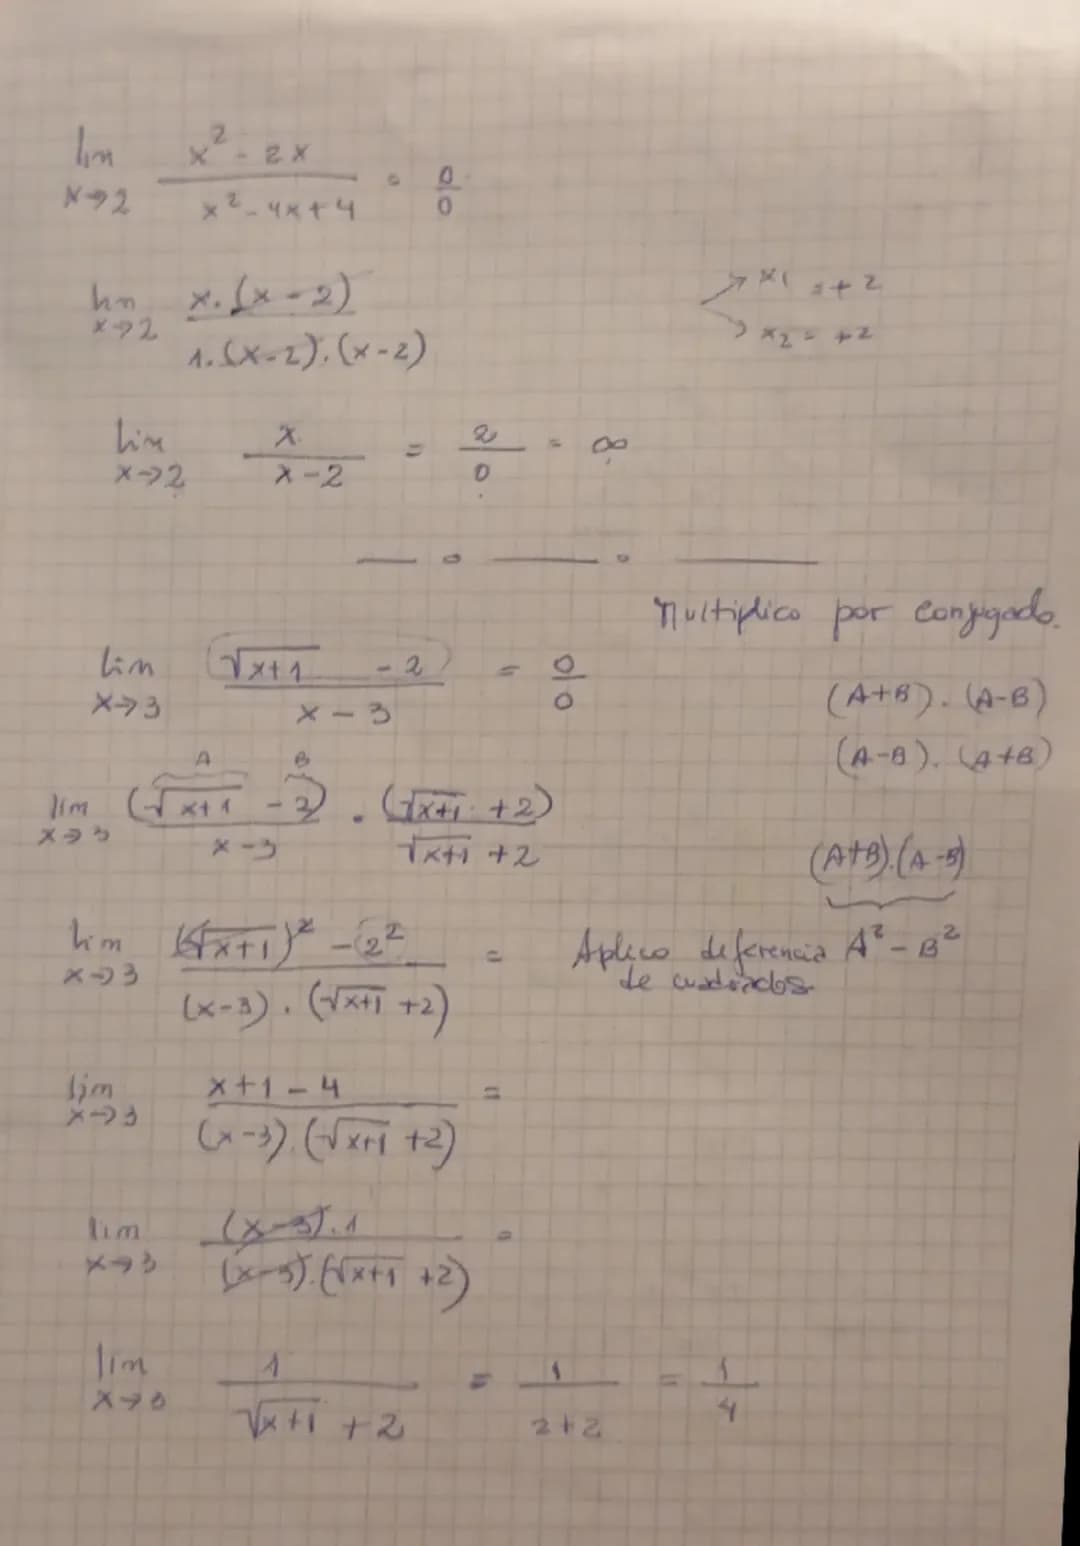 lim x→2 (x² - 2x)/(x² - 4x + 4) = 0/0
lim x→2 x.(x - 2)/1.(x-2).(x-2) → x1 = +2
→ x2 = +2
lim x→2 x/(x-2) = 2/0 = ∞
Multiplico por conjugado.
lim x→3 (√(x+1) - 2)/(x - 3) = 0/0
(A+B).(A-B)
(A-B).(A+B)
A B
lim x→3 (√(x+1) - 2)/(x-3) . (√(x+1) +2)/(√(x+1) +2)
(A+B).(A-B)
lim x→3 ((√(x+1))² - 2²)/((x-3).(√(x+1) +2)) = Aplico deferencia A² - B²
de cuadrados
lim x→3 (x+1-4)/((x-3).(√(x+1) +2)) =
lim x→3 (x-3).1/((x-3).(√(x+1) +2)) =
lim x→3 1/(√(x+1) + 2) = 1/(2+2) = 1/4